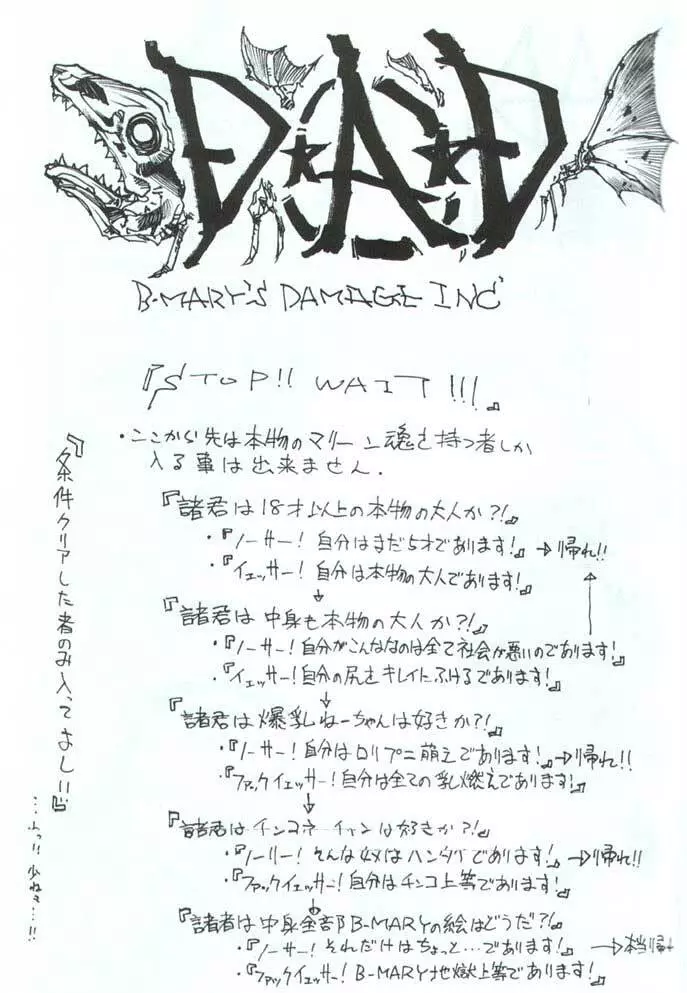 D★A★D
B-MARY'S DAMAGE INC
『STOP!! WAIT!!!』
・ここから先は本物のマリーン魂を持つ者しか
入る事は出来ません.
『諸君は18才以上の本物の大人か?!』
・『ノーサー!自分はまだ5才であります!』→帰れ!!
・『イエッサー!自分は本物の大人であります!』
↓
『諸君は中身も本物の大人か?!』
・『ノーサー!自分がこんななのは全て社会が悪いのであります!』
・『イエッサー!自分の尻をキレイにふけるであります!』
↓
『諸君は爆乳ねーちゃんは好きか?!』
・『ノーサー!自分はロリプニ萌えであります!』→帰れ!!
・『ファックイエッサー!自分は全ての乳燃えであります!』
↓
『諸君はチンコネーチャンは好きか?!』
・『ノーサー!そんな奴はハンタイであります!』→帰れ!!
・『ファックイエッサー!自分はチンコ上等であります!』
↓
『諸君は中身全部B-MARYの絵はどうだ?!』
・『ノーサー!それだけはちょっと…であります!』→本当帰れ
・『ファックイエッサー!B-MARY地獄上等であります!』
『条件クリアした者のみ入ってよし!!』